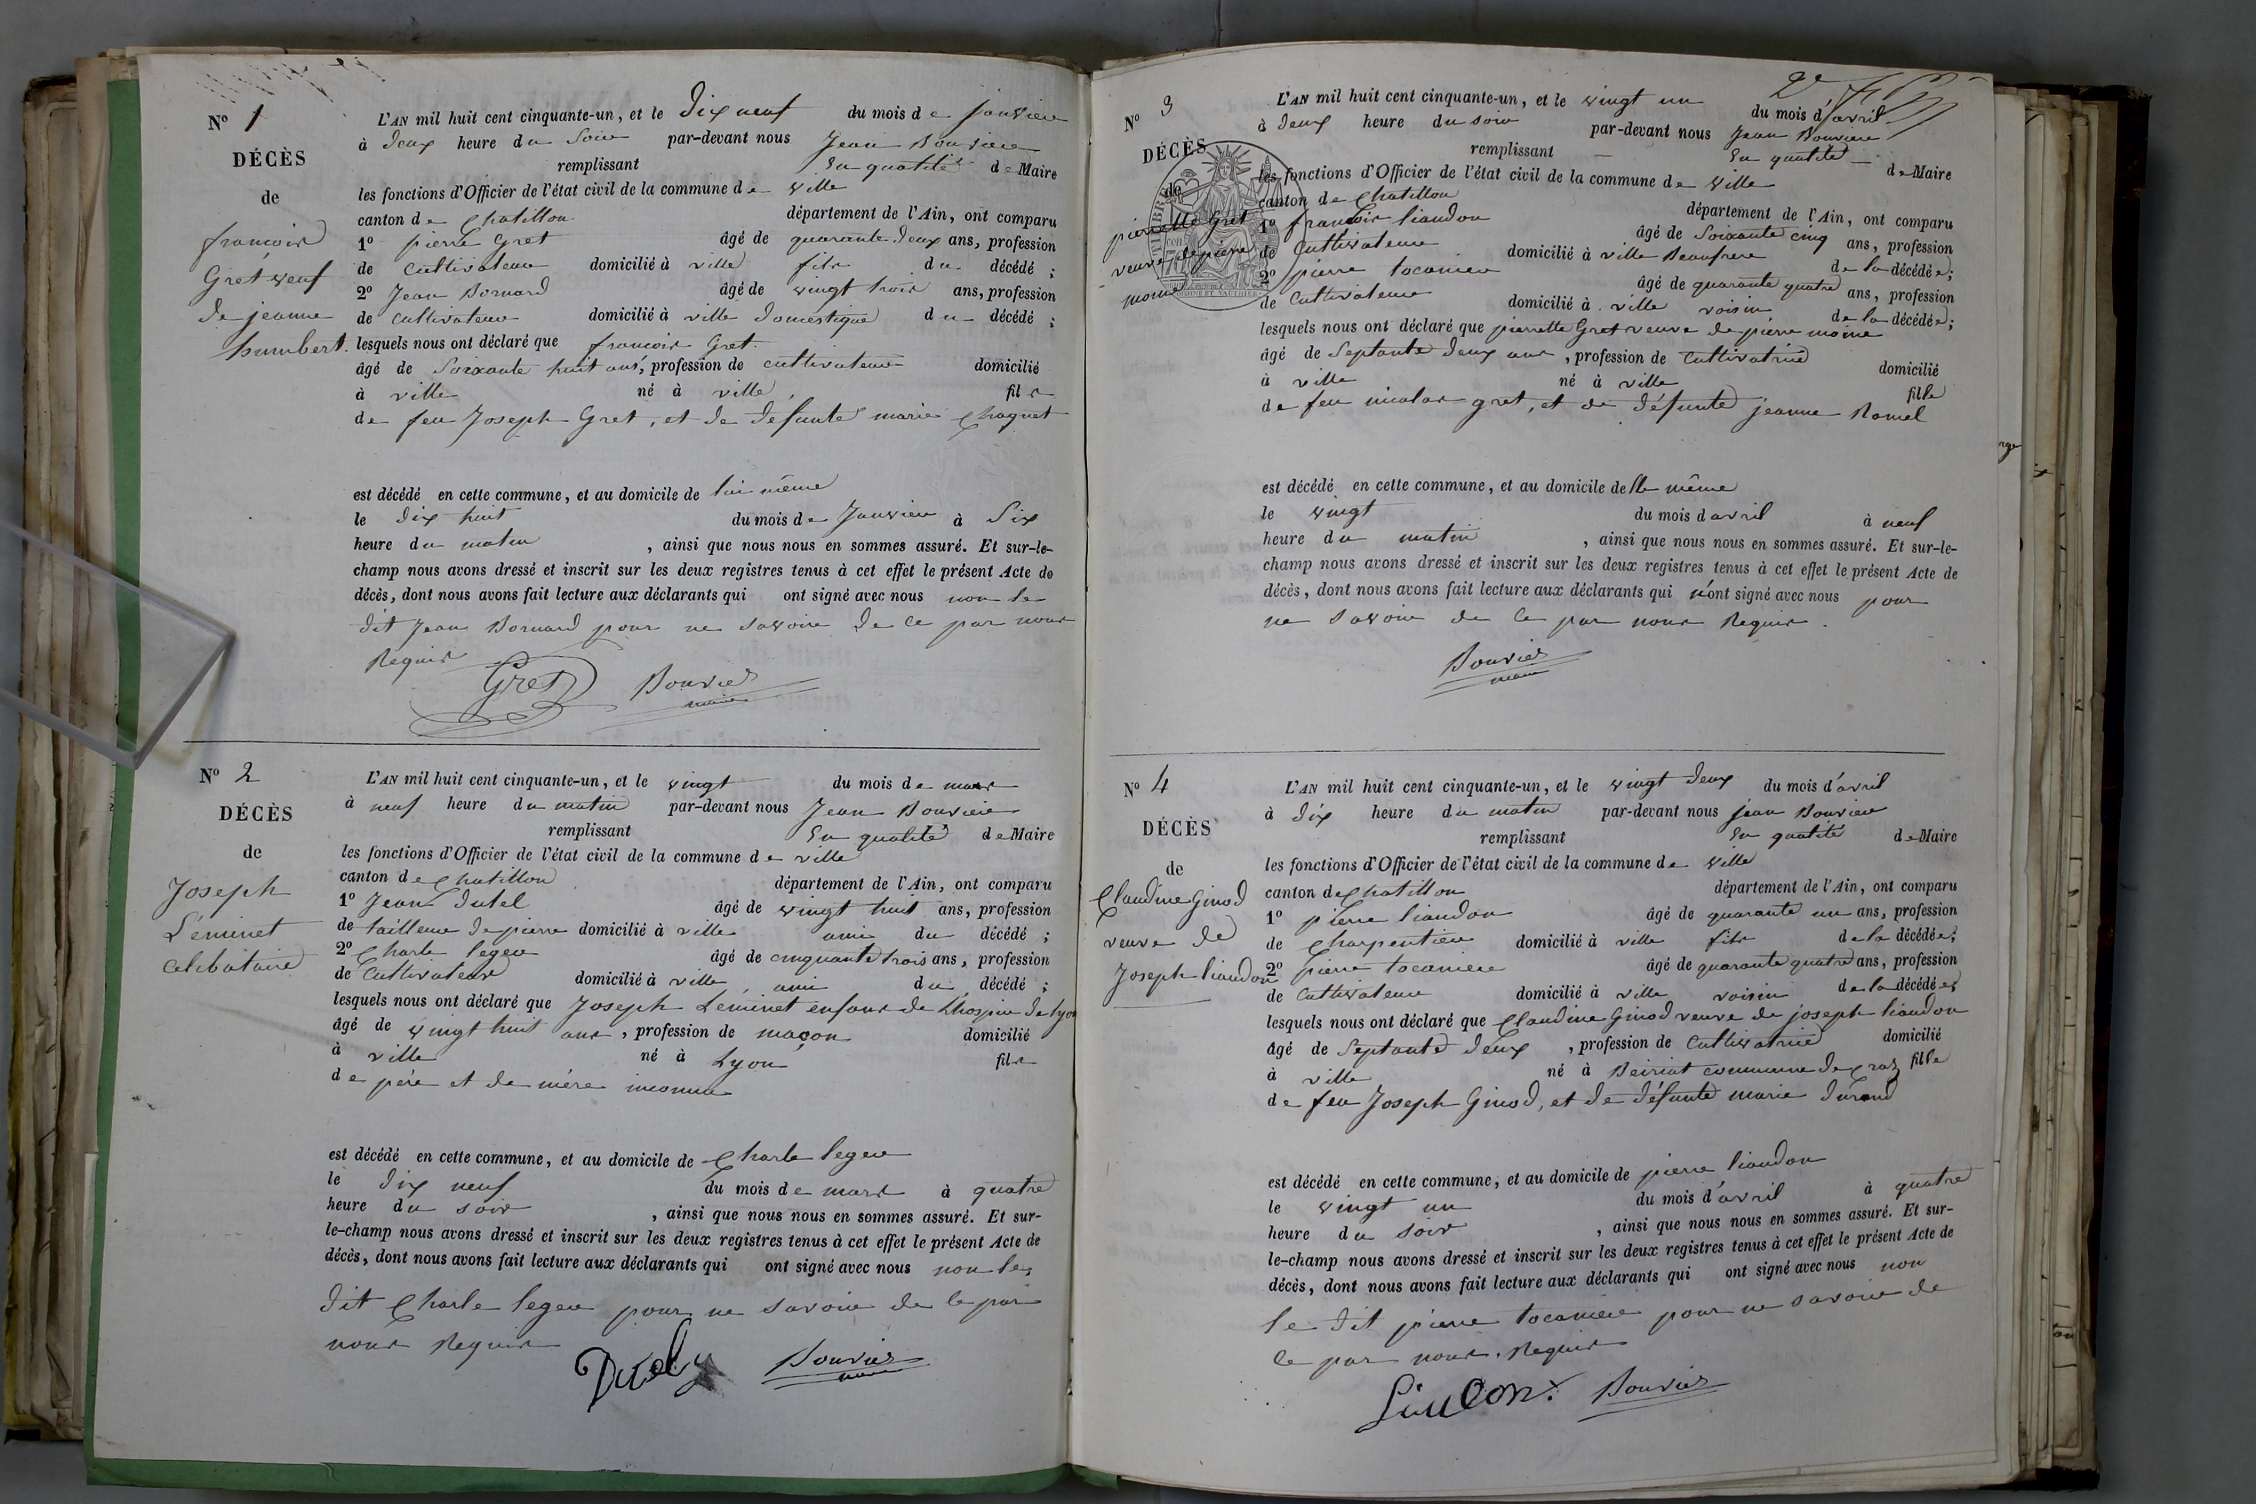 N° 1
DÉCÈS
de
francois
Gret veuf
de jeanne
humbert.
L'AN mil huit cent cinquante-un, et le dix neuf du mois de janvier
à deux heure du soir par-devant nous Jean Bouvier
remplissant En qualité de Maire
les fonctions d'Officier de l'état civil de la commune de ville
canton de Chatillon département de l'Ain, ont comparu
1° pierre Gret âgé de quarante deux ans, profession
de cultivateur domicilié à ville fils du décédé ;
2° Jean Bornard âgé de vingt trois ans, profession
de cultivateur domicilié à ville domestique du décédé ;
lesquels nous ont déclaré que francois Gret
âgé de Soixante huit ans, profession de cultivateur domicilié
à ville né à ville, fils
de feu Joseph Gret, et de defunte marie Chaguet
est décédé en cette commune, et au domicile de lui même
le dix huit du mois de Janvier à Six
heure du matin , ainsi que nous nous en sommes assuré. Et sur-le-
champ nous avons dressé et inscrit sur les deux registres tenus à cet effet le présent Acte de
décès, dont nous avons fait lecture aux déclarants qui ont signé avec nous non le
dit Jean Bornard pour ne savoir de ce par nous
Requis
Gret Bouvier
maire
N° 2
DÉCÈS
de
Joseph
Léminet
celibataire
L'AN mil huit cent cinquante-un, et le vingt du mois de mars
à neuf heure du matin par-devant nous Jean Bouvier
remplissant En qualité de Maire
les fonctions d'Officier de l'état civil de la commune de ville
canton de Chatillon département de l'Ain, ont comparu
1° Jean Dutel âgé de vingt huit ans, profession
de tailleur de pierre domicilié à ville ami du décédé ;
2° Charle leger âgé de cinquante trois ans, profession
de Cultivateur domicilié à ville, ami du décédé ;
lesquels nous ont déclaré que Joseph Leminet enfant de Lhospice de lyon
âgé de vingt huit ans, profession de maçon domicilié
à ville né à Lyon fils
de père et de mère inconnu
est décédé en cette commune, et au domicile de Charle leger
le dix neuf du mois de mars à quatre
heure du soir , ainsi que nous nous en sommes assuré. Et sur-
le-champ nous avons dressé et inscrit sur les deux registres tenus à cet effet le présent Acte de
décès, dont nous avons fait lecture aux déclarants qui ont signé avec nous non le
dit Charle leger pour ne savoir de ce par
nous Requis
Bouvier
maire
N° 3
DÉCÈS
de
pierrette Gret
veuve de pierre
moine
L'AN mil huit cent cinquante-un, et le vingt un du mois d'avril
à deux heure du soir par-devant nous Jean Bouvier
remplissant En qualité de Maire
les fonctions d'Officier de l'état civil de la commune de Ville
canton de Chatillon département de l'Ain, ont comparu
1° françois liaudon âgé de Soixante cinq ans, profession
de Cultivateur domicilié à ville Beaufrere de la décédée ;
2° pierre tocanier âgé de quarante quatre ans, profession
de Cultivateur domicilié à ville voisin de la décédée ;
lesquels nous ont déclaré que pierrette Gret veuve de pierre moine
âgé de Septante deux ans, profession de Cultivatrice domicilié
à ville né à ville fille
de feu nicolas gret, et de défunte jeanne Ramel
est décédé en cette commune, et au domicile de lle même
le vingt du mois d avril à neuf
heure du matin , ainsi que nous nous en sommes assuré. Et sur-le-
champ nous avons dressé et inscrit sur les deux registres tenus à cet effet le présent Acte de
décès, dont nous avons fait lecture aux déclarants qui n'ont signé avec nous pour
ne savoir de ce par nous Requis.
Bouvier
maire
N° 4
DÉCÈS
de
Claudine Ginod
veuve de
Joseph liaudon
L'AN mil huit cent cinquante-un, et le vingt deux du mois d'avril
à dix heure du matin par-devant nous jean Bouvier
remplissant En qualité de Maire
les fonctions d'Officier de l'état civil de la commune de Ville
canton de Chatillon département de l'Ain, ont comparu
1° pierre liaudon âgé de quarante un ans, profession
de Charpentier domicilié à ville fils de la décédée ;
2° pierre tocaniere âgé de quarante quatre ans, profession
de Cultivateur domicilié à ville voisin de la décédée ;
lesquels nous ont déclaré que Claudine Ginod veuve de joseph liaudon
âgé de Septante deux , profession de Cultivatrice domicilié
à ville né à Beiriat commune de Craz fille
de feu Joseph Ginod, et de défunte marie durand
est décédé en cette commune, et au domicile de pierre liaudon
le vingt un du mois d'avril à quatre
heure du soir , ainsi que nous nous en sommes assuré. Et sur-
le-champ nous avons dressé et inscrit sur les deux registres tenus à cet effet le présent Acte de
décès, dont nous avons fait lecture aux déclarants qui ont signé avec nous non
le dit pierre tocaniere pour ne savoir de
ce par nous Requis
Bouvier